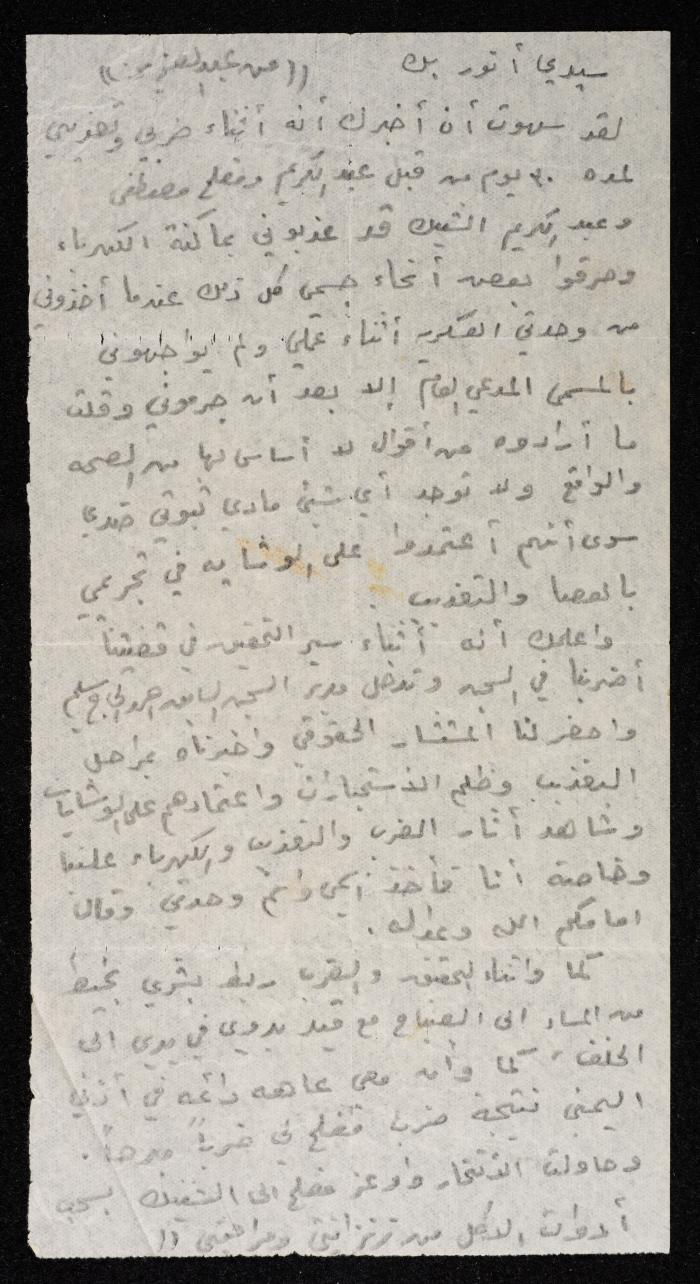 سيدي أنور بك ((من عبد العزيز))
لقد سهوت أن أخبرك أنه أثناء ضربي وتعذيبي
لمدة ٣٠ يوم من قبل عبد الكريم ومفلح مصطفى
وعبد الكريم الشيك قد عذبوني بماكنة الكهرباء
وحرقوا بعض أنحاء جسمي كل ذلك عندما أخذوني
من وحدتي العسكرية أثناء عملي ولم يواجهوني
بالمسمى المدعي العام إلا بعد أن جرموني وقلت
ما أرادوه من أقوال لا أساس لها من الصحه
والواقع ولا توجد أي شيئ مادي ثبوتي ضدي
سوى أنهم أعتمدوا على الوشايه في تجريمي
بالعصا والتعذيب.
واعلمك أنه أثناء سير التحقيق في قضيتنا
أضربنا في السجن وتدخل مدير السجن السابق سليم
واحضر لنا المستشار الحقوقي واخبرناه بمراحل
التعذيب وظلم الاستخبارات واعتمادهم على الوشايات
وشاهد أثار الضرب والتعذيب والكهرباء علينا
وخاصة أنا فأخذ إسمي وأسم وحدتي وقال
امامكم الله وعدالة.
كما واثناء التحقيق والضرب ربط بشري بخيط
من المساء الى الصباح مع قيد يدوي في يدي الى
الخلف، كما وأن معي عاهه دائمه في أذني
اليمنى نتيجة ضرب مفلح لي ضرباً مبرحاً.
وحاولت الانتحار واوعز مفلح الى الشيك بسحب
أدوات الاكل من زنزانتي ومراقبتي))